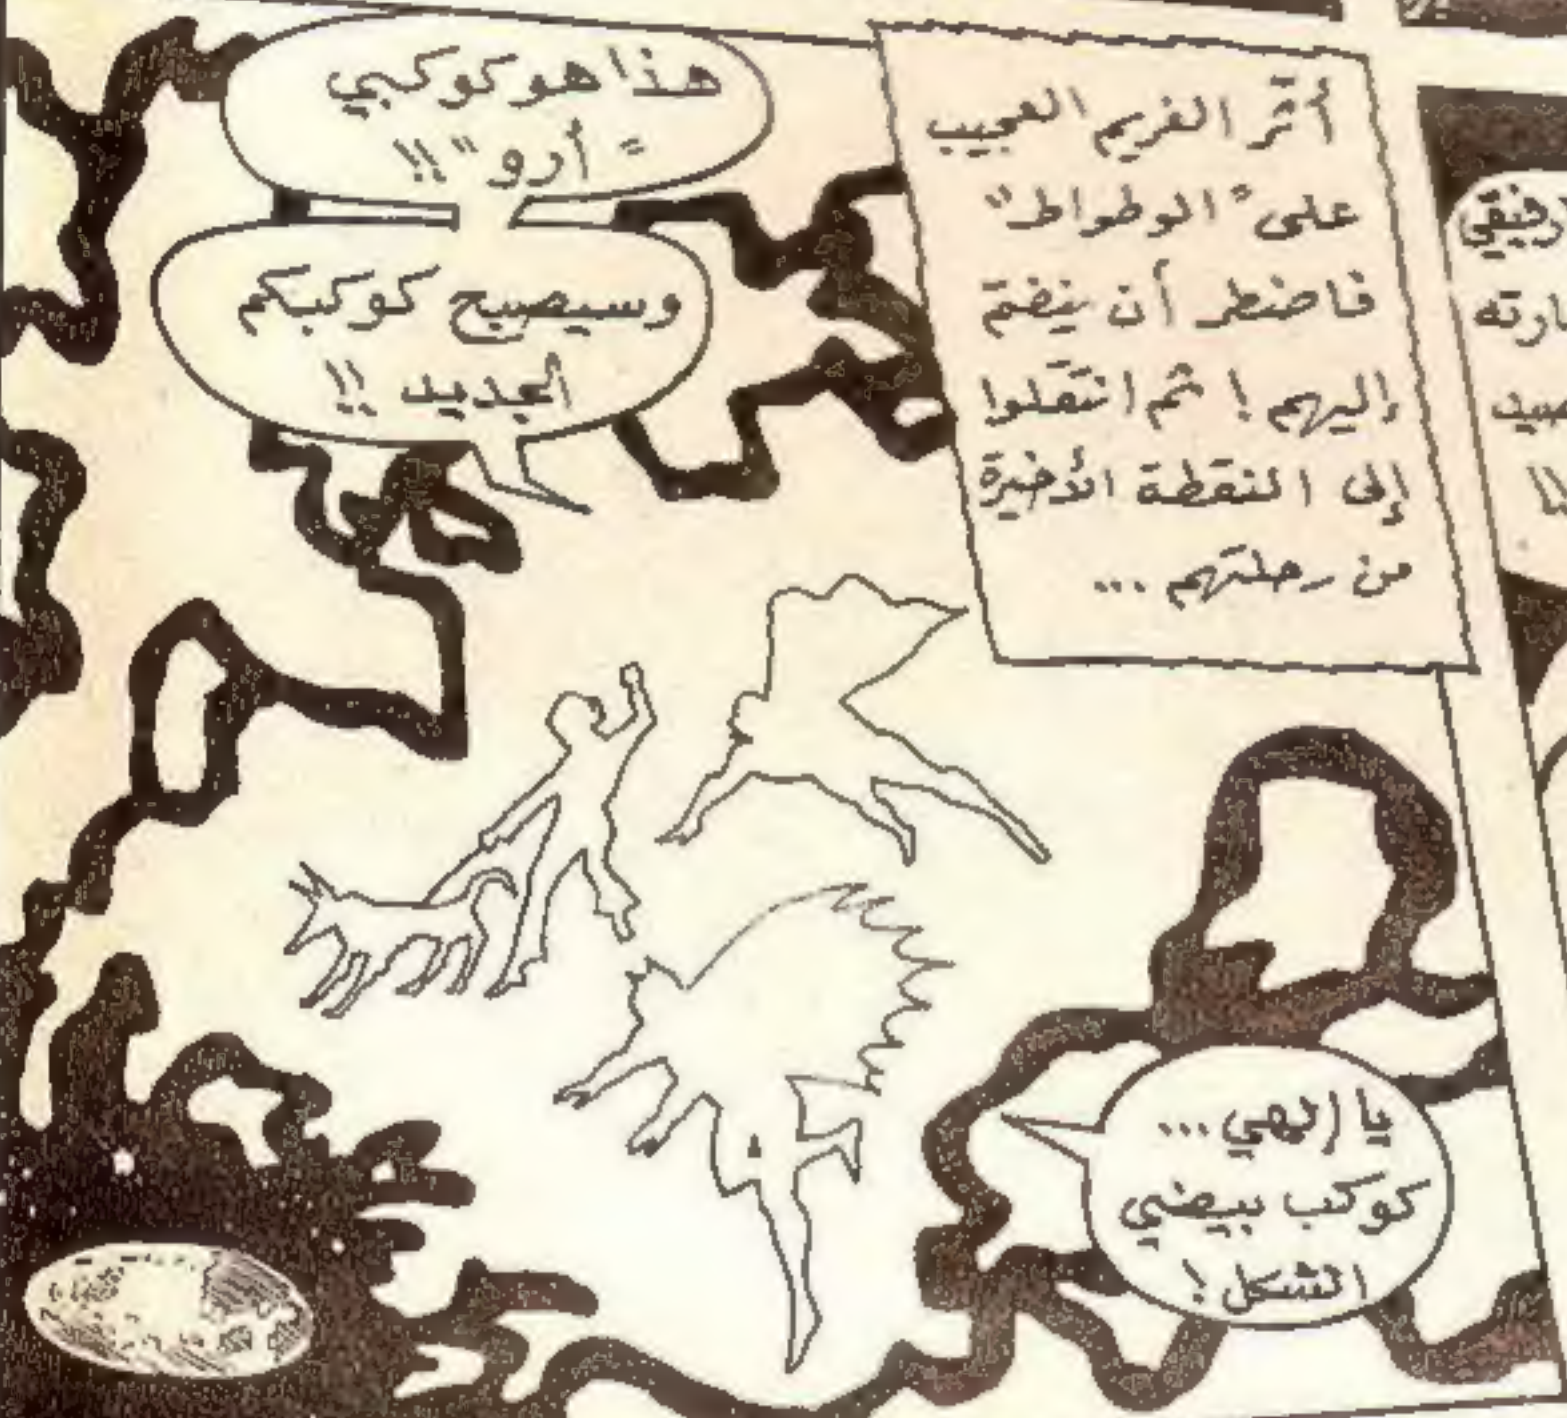 أثّر الغريم العجيب
على "الوطواط"
فاضطر أن ينضمّ
إليهم! ثم انتقلوا
إلى النقطة الأخيرة
من رحلتهم ...
هذا هو كوكبي
"أرو"!!
وسيصبح كوكبكم
الجديد!!
يا إلهي...
كوكب بيضي
الشكل!